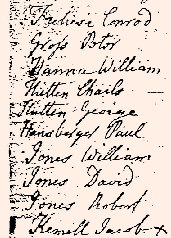 Conrod
Gross Peter
Hanna William
Hutten Charls
Hutten George
Hansberger Paul
Jones William
Jones David
Jones Robert
Kemell Jacob